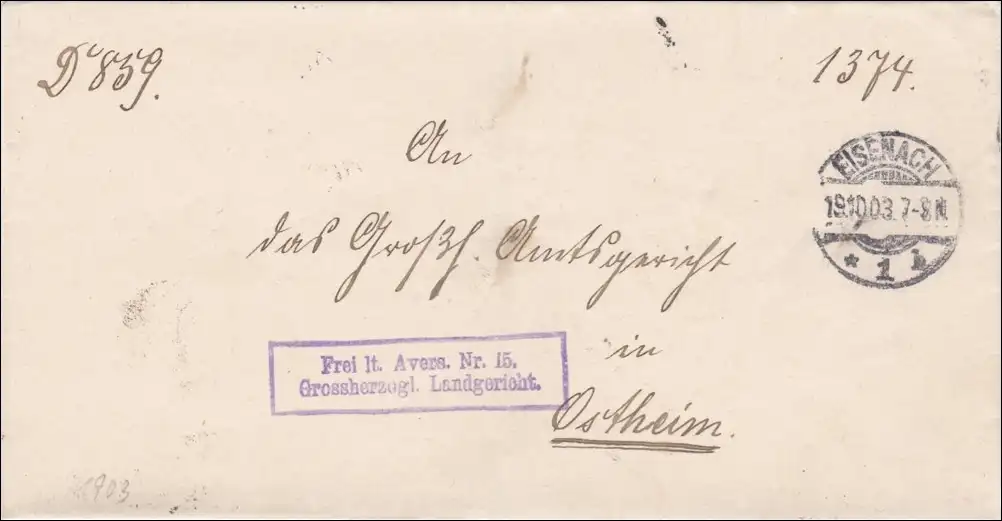 Dr 859.
1374.
An
EISENACH
19.10.03. 7-8 N.
* 1 b
das Großh. Amtsgericht
in
Frei lt. Avers. Nr. 15.
Grossherzogl. Landgericht.
Ostheim.
1903